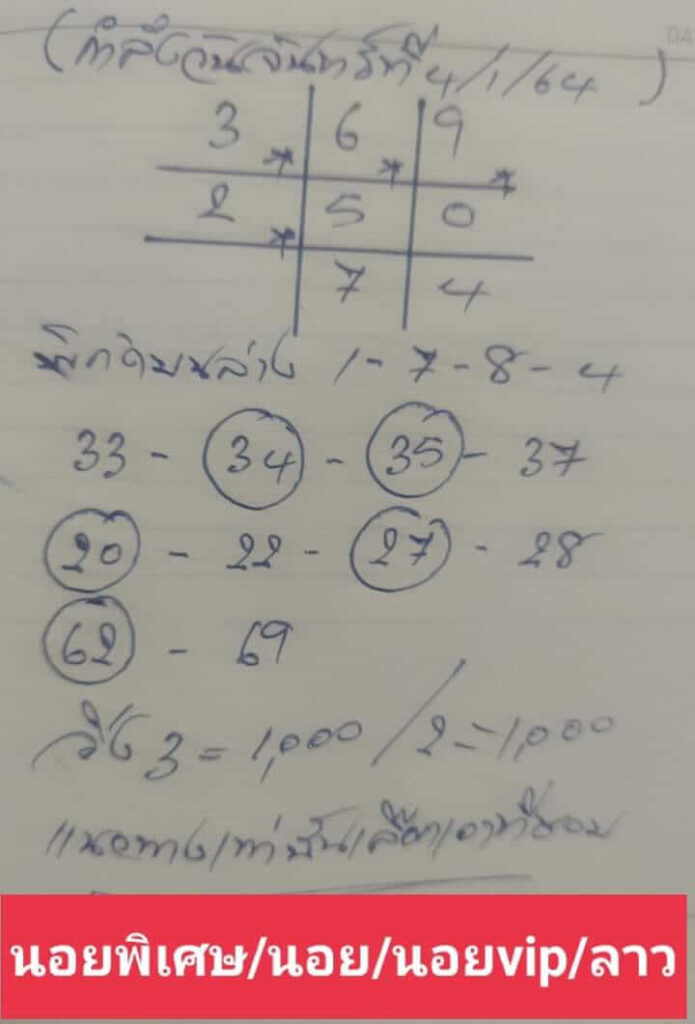 (กำลังวันจันทร์ที่ 4/1/64)
3 6 9
2 5 0
7 4
บนล่าง 1-7-8-4
33 - 34 - 35 - 37
20 - 22 - 27 - 28
62 - 69
วิ่ง 3 = 1,000 / 2 = 1,000
แนวทางเท่านั้นเลือกเอาที่ชอบ
นอยพิเศษ/นอย/นอยvip/ลาว